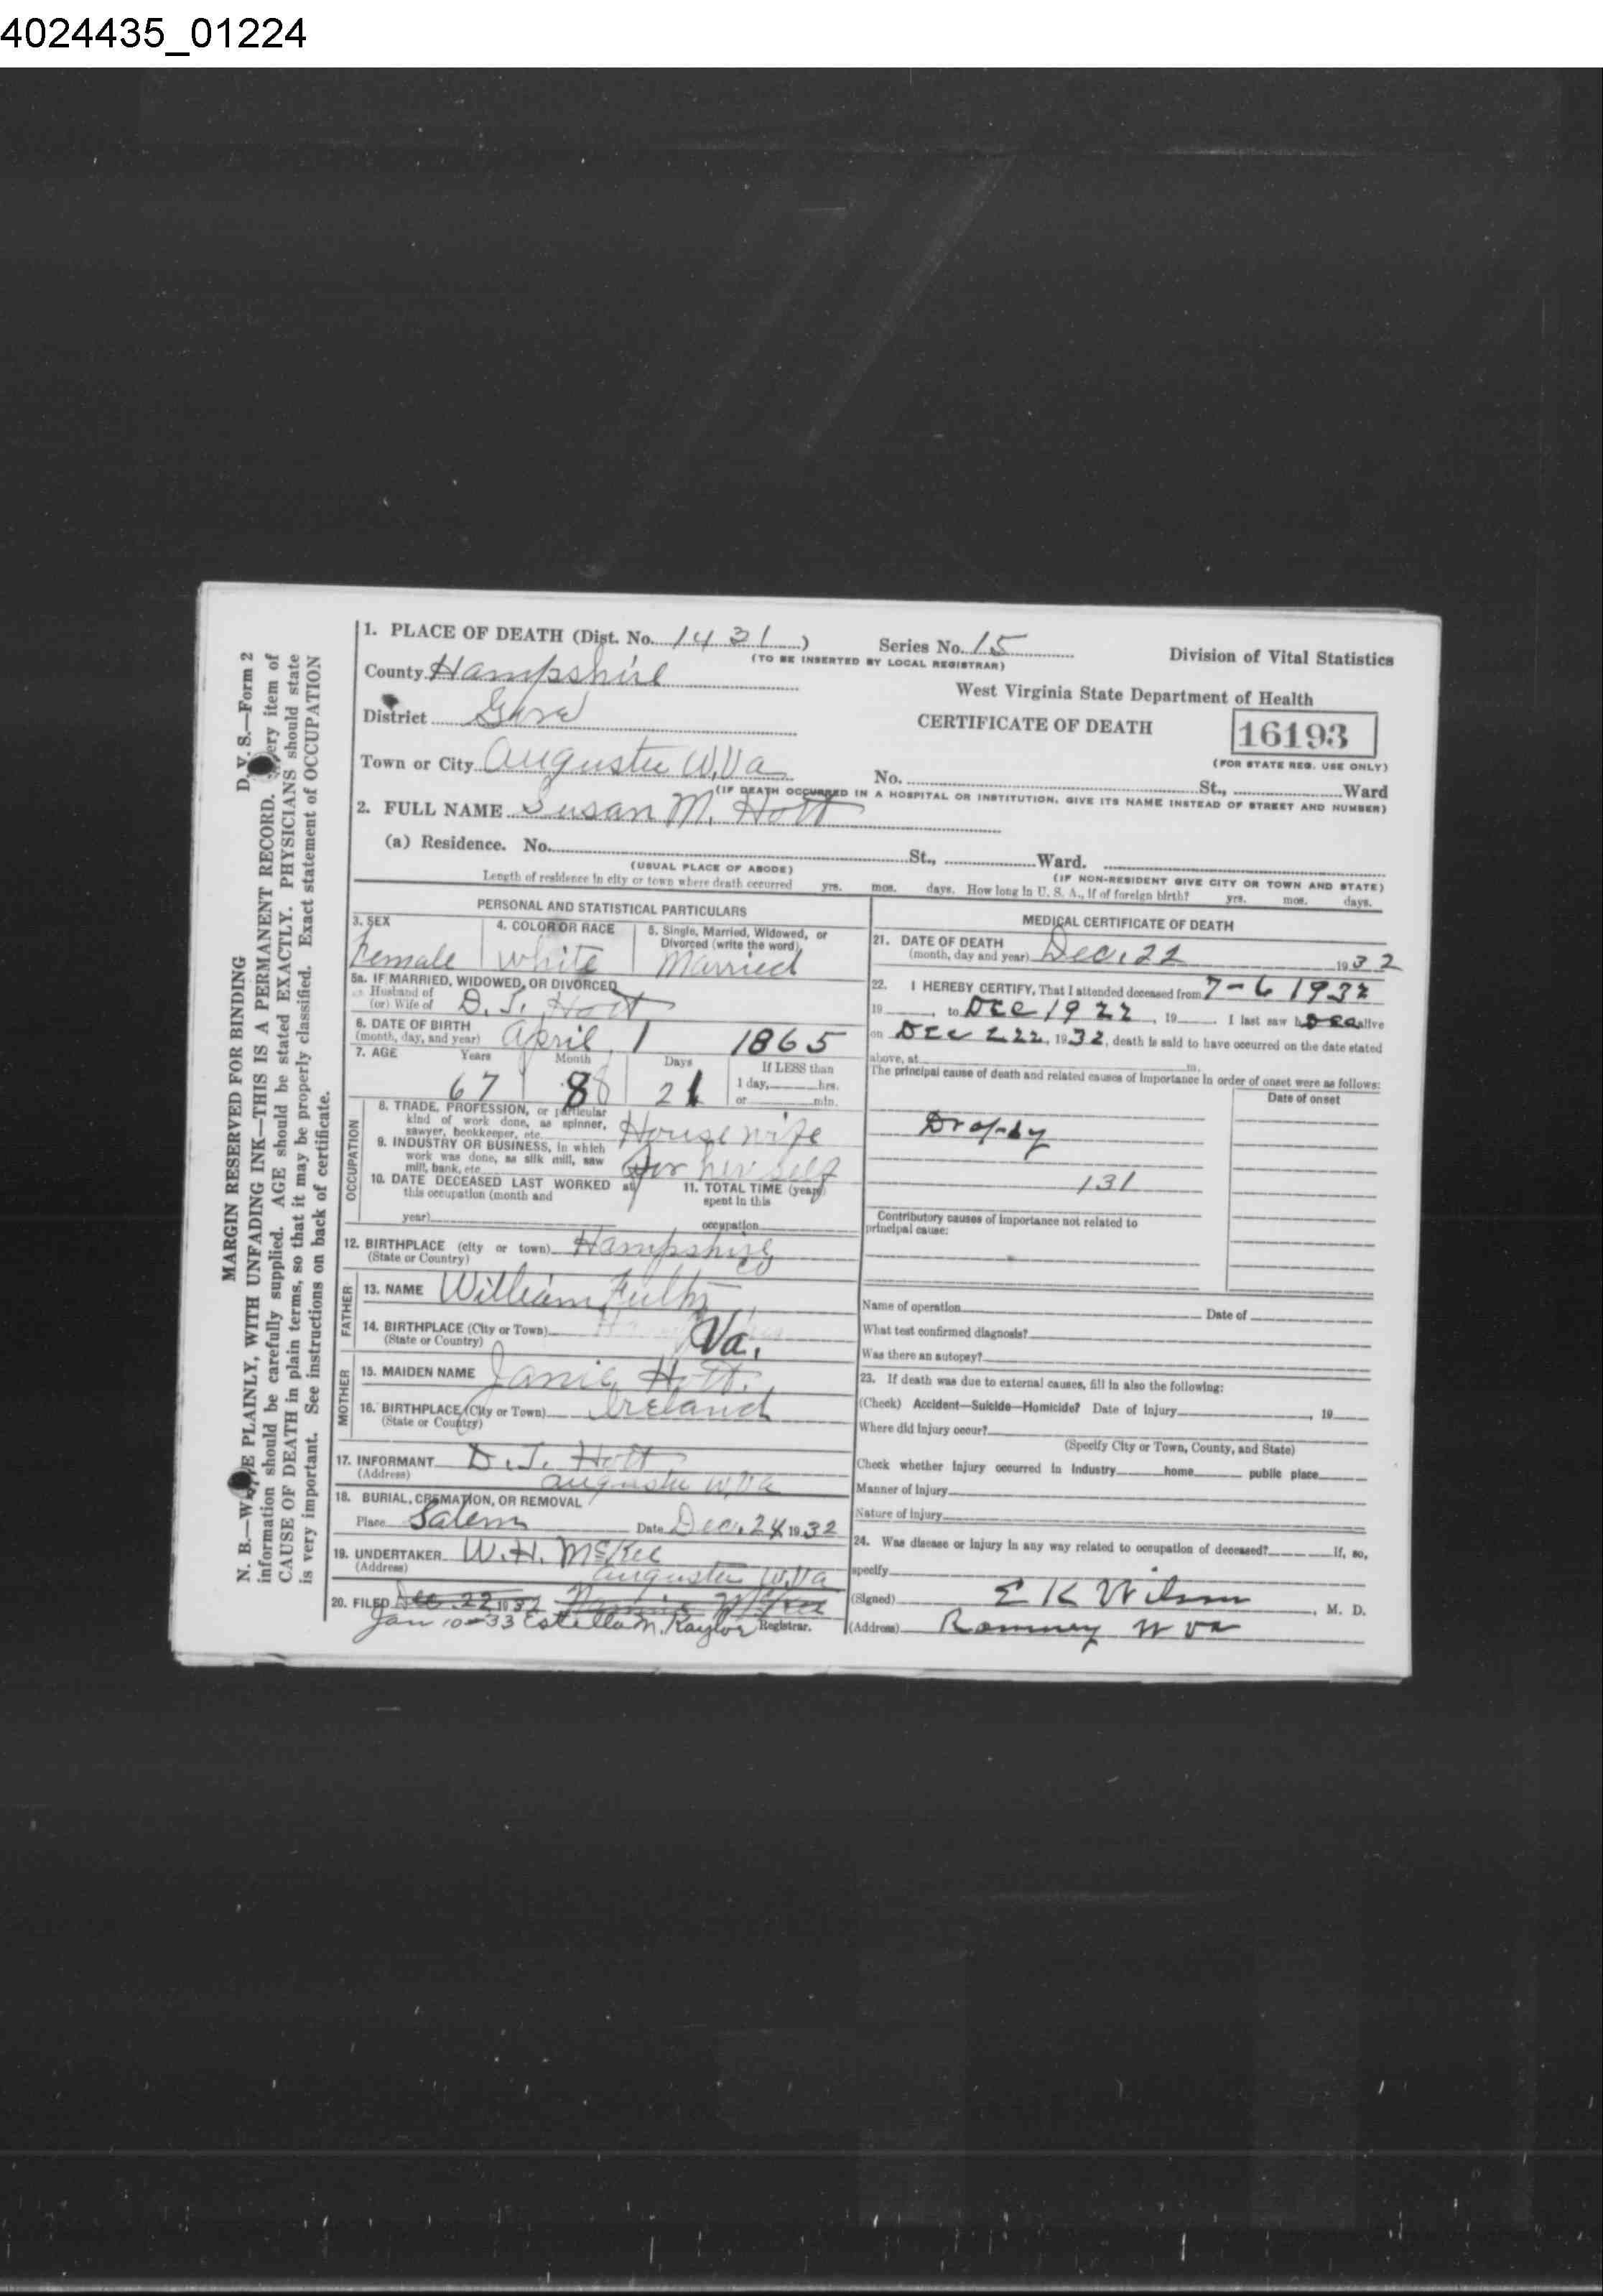 4024435_01224
MARGIN RESERVED FOR BINDING D. V. S.—Form 2
N. B.—WRITE PLAINLY, WITH UNFADING INK—THIS IS A PERMANENT RECORD. Every item of
information should be carefully supplied. AGE should be stated EXACTLY. PHYSICIANS should state
CAUSE OF DEATH in plain terms, so that it may be properly classified. Exact statement of OCCUPATION
is very important. See instructions on back of certificate.
1. PLACE OF DEATH (Dist. No. 1431) Series No. 15
(TO BE INSERTED BY LOCAL REGISTRAR)
Division of Vital Statistics
County Hampshire
West Virginia State Department of Health
District
CERTIFICATE OF DEATH 16193
(FOR STATE REG. USE ONLY)
Town or City Augusta W.Va No. St., Ward
(IF DEATH OCCURRED IN A HOSPITAL OR INSTITUTION, GIVE ITS NAME INSTEAD OF STREET AND NUMBER)
2. FULL NAME Susan M. Hott
(a) Residence. No. St., Ward.
(USUAL PLACE OF ABODE) (IF NON-RESIDENT GIVE CITY OR TOWN AND STATE)
Length of residence in city or town where death occurred yrs. mos. days. How long in U. S. A., if of foreign birth? yrs. mos. days.
PERSONAL AND STATISTICAL PARTICULARS
3. SEX 4. COLOR OR RACE 5. Single, Married, Widowed, or
Divorced (write the word)
Female white Married
5a. IF MARRIED, WIDOWED, OR DIVORCED
Husband of
(or) Wife of D. T. Hott
6. DATE OF BIRTH
(month, day, and year) April 1 1865
7. AGE Years Month Days If LESS than
1 day, hrs.
or min.
67 8 21
OCCUPATION
8. TRADE, PROFESSION, or particular
kind of work done, as spinner,
sawyer, bookkeeper, etc. Housewife
9. INDUSTRY OR BUSINESS, in which
work was done, as silk mill, saw
mill, bank, etc. for her self
10. DATE DECEASED LAST WORKED at
this occupation (month and
year)
11. TOTAL TIME (years)
spent in this
occupation
12. BIRTHPLACE (city or town) Hampshire
(State or Country) Co
FATHER
13. NAME William Fultz
14. BIRTHPLACE (City or Town)
(State or Country) Va.
MOTHER
15. MAIDEN NAME Janie Hott
16. BIRTHPLACE (City or Town) Ireland
(State or Country)
17. INFORMANT D. T. Hott
(Address) Augusta W.Va
18. BURIAL, CREMATION, OR REMOVAL
Place Salem Date Dec. 24 1932
19. UNDERTAKER W. H. McKee
(Address) Augusta W.Va
20. FILED Dec 22 1932
Jan 10-33 Estella M. Kaylor Registrar.
MEDICAL CERTIFICATE OF DEATH
21. DATE OF DEATH
(month, day and year) Dec. 22 1932
22. I HEREBY CERTIFY, That I attended deceased from 7-6 1932
19 , to Dec 19 22, 19 I last saw h alive
on Dec 222, 1932, death is said to have occurred on the date stated
above, at m.
The principal cause of death and related causes of importance in order of onset were as follows:
Date of onset
Dropsy
131
Contributory causes of importance not related to
principal cause:
Name of operation Date of
What test confirmed diagnosis?
Was there an autopsy?
23. If death was due to external causes, fill in also the following:
(Check) Accident—Suicide—Homicide? Date of injury , 19
Where did injury occur?
(Specify City or Town, County, and State)
Check whether injury occurred in industry home public place
Manner of injury
Nature of injury
24. Was disease or injury in any way related to occupation of deceased? If, so,
specify
(Signed) E K Wilson , M. D.
(Address) Romney W Va